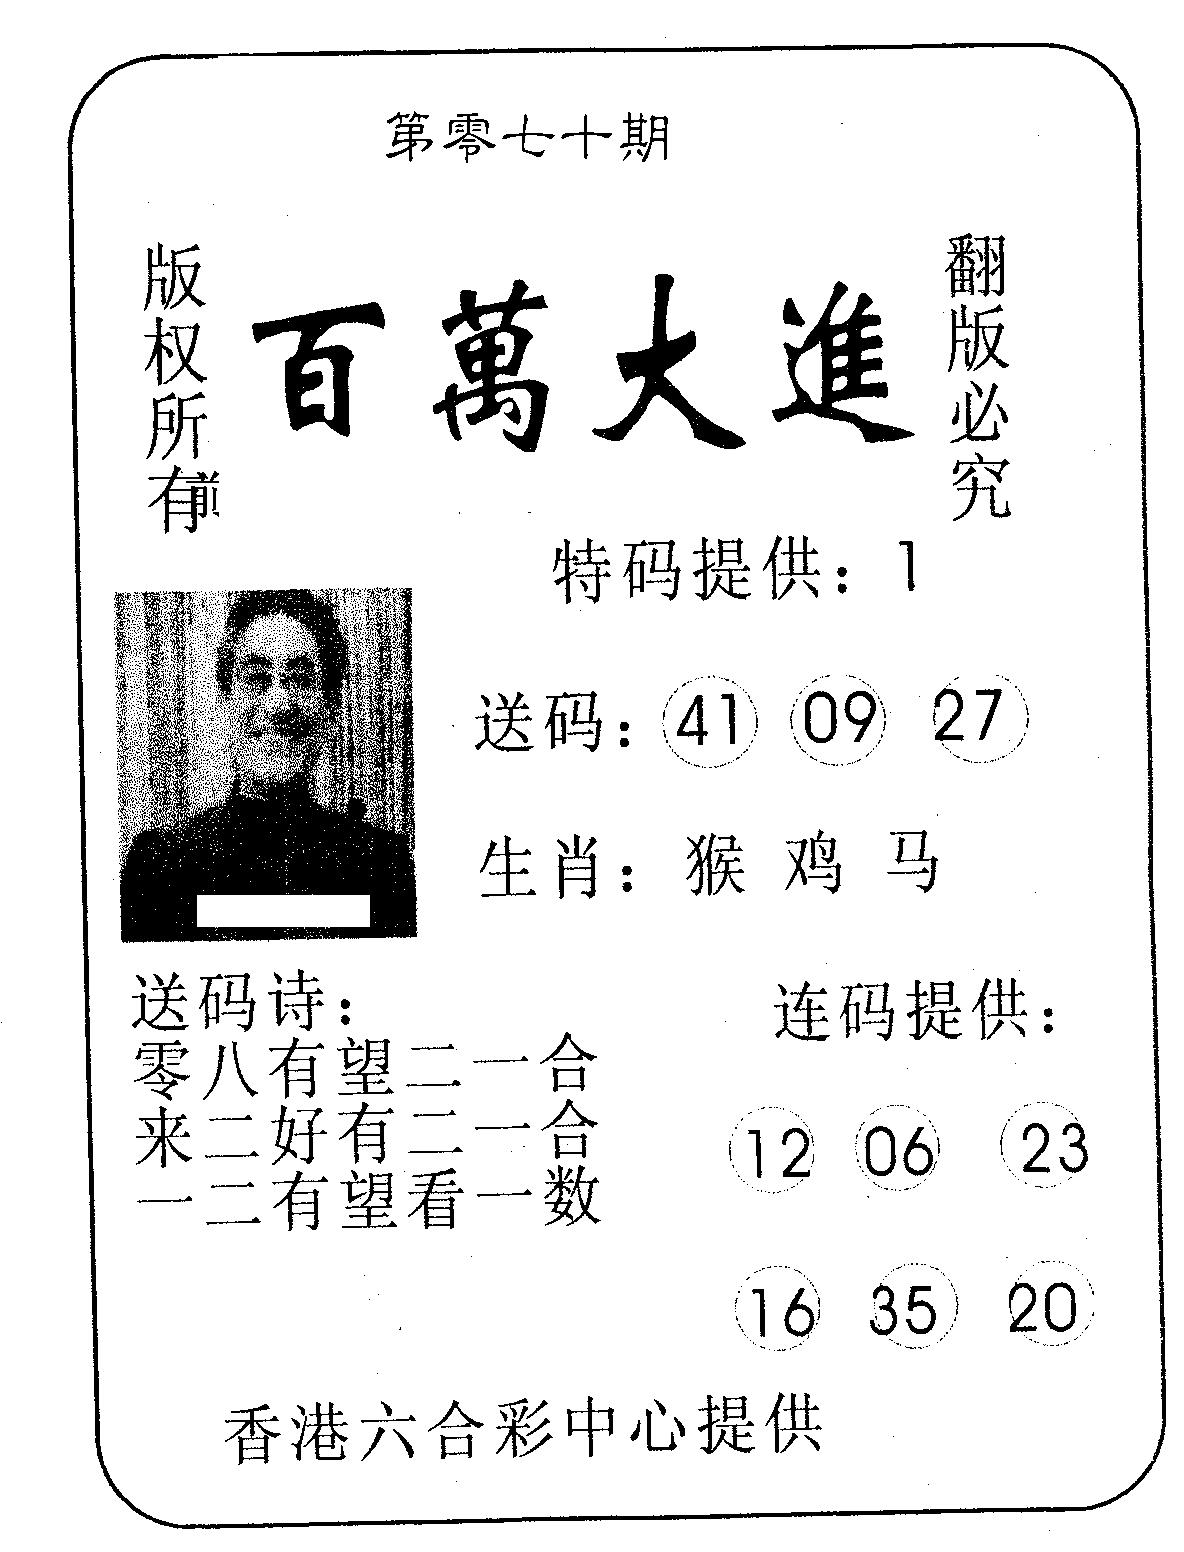 第零七十期
版权所有
百萬大進
翻版必究
特码提供：1
送码：41 09 27
生肖：猴 鸡 马
送码诗：
零八有望二一合
来二好有二一合
一二有望看一数
连码提供：
12 06 23
16 35 20
香港六合彩中心提供